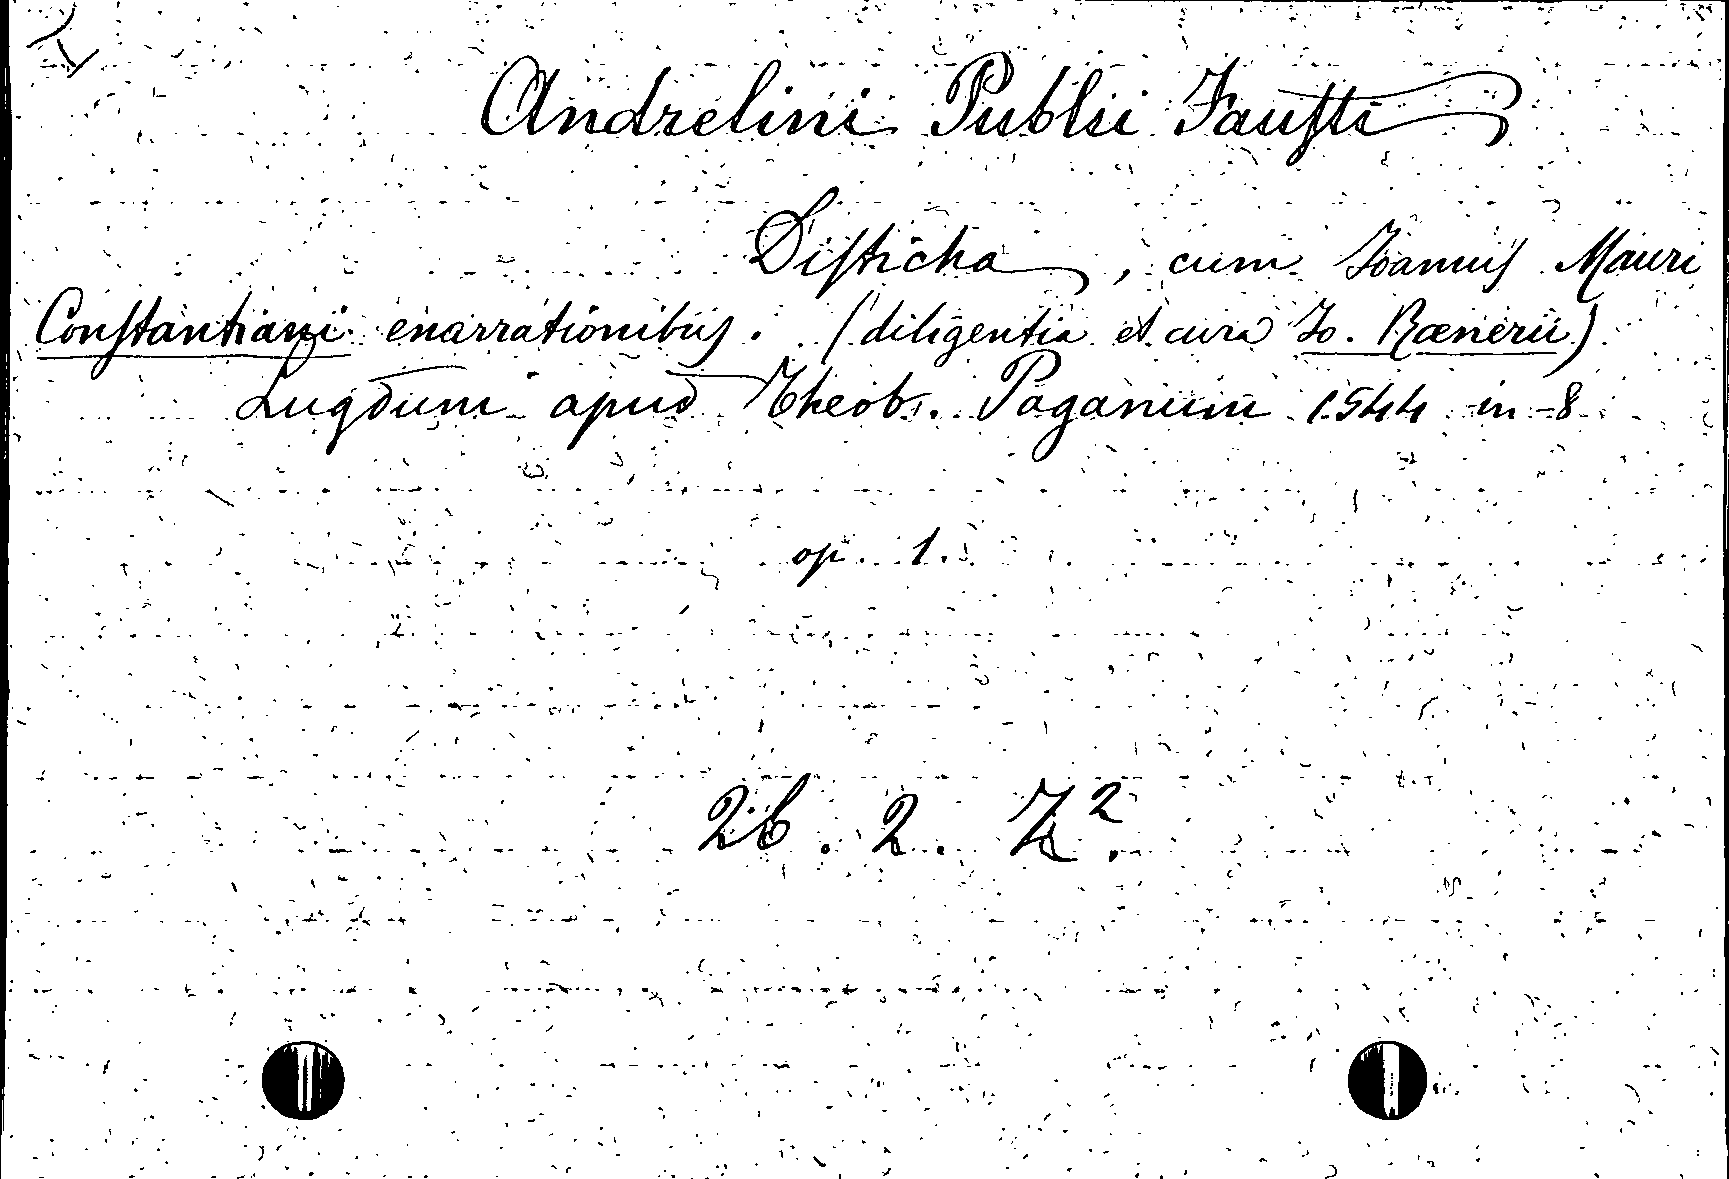 Andrelini Publii Fauſti
Diſticha, cum Ioannis Mauri
Conſtantiani enarrationibus. (diligentia et cura Io. Rænerii)
Lugduni apud Theob. Paganum 1544 in 8
op. 1.
26. 2. Z².